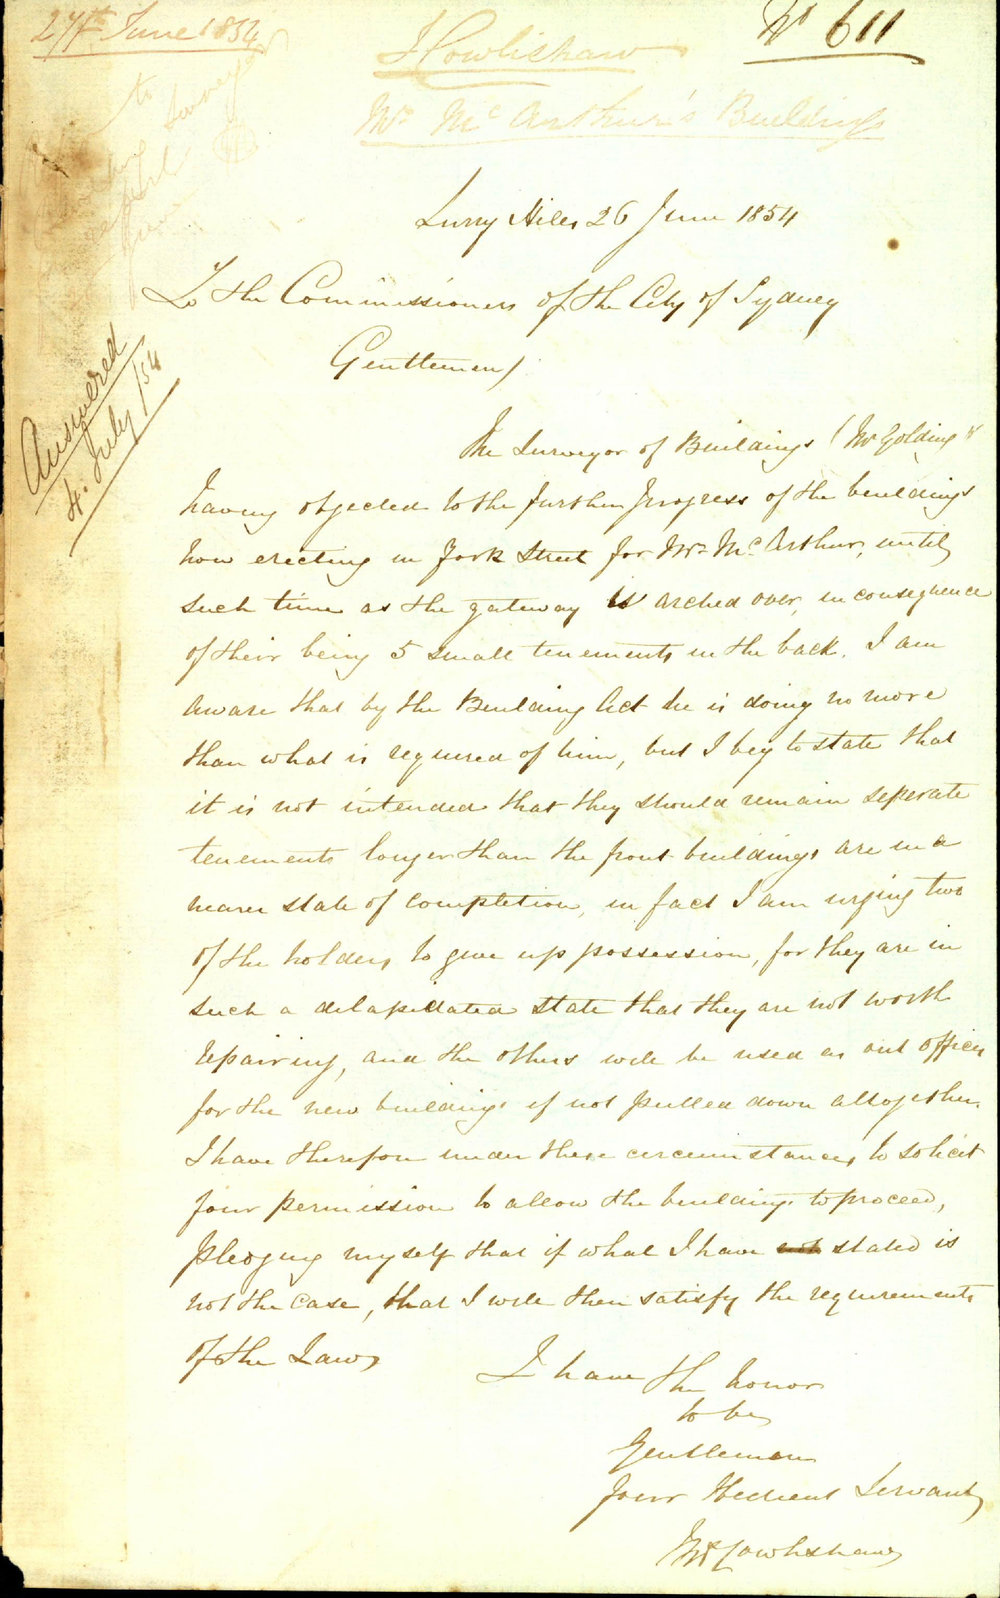 27th June 1854
No 611
J Cowlishaw
Mr McArthur's Buildings
to
Surveyor
Answered
4. July /54
Surry Hills 26 June 1854
To the Commissioners of the City of Sydney
Gentlemen/
The Surveyor of Buildings (Mr Golding)
having objected to the further progress of the buildings
now erecting in York Street for Mr McArthur, until
such time as the gateway is arched over, in consequence
of their being 5 small tenements in the back. I am
aware that by the Building Act he is doing no more
than what is required of him, but I beg to state that
it is not intended that they should remain seperate
tenements longer than the front buildings are in a
nearer state of completion, in fact I am urging two
of the holders to give up possession, for they are in
such a delapidated state that they are not worth
repairing, and the others will be used as out offices
for the new buildings if not pulled down altogether.
I have therefore under these circumstances to solicit
your permission to allow the buildings to proceed,
pledging myself that if what I have not stated is
not the case, that I will then satisfy the requirements
of the Law
I have the honor
to be
Gentlemen
Your Obedient Servant
Cowlishaw